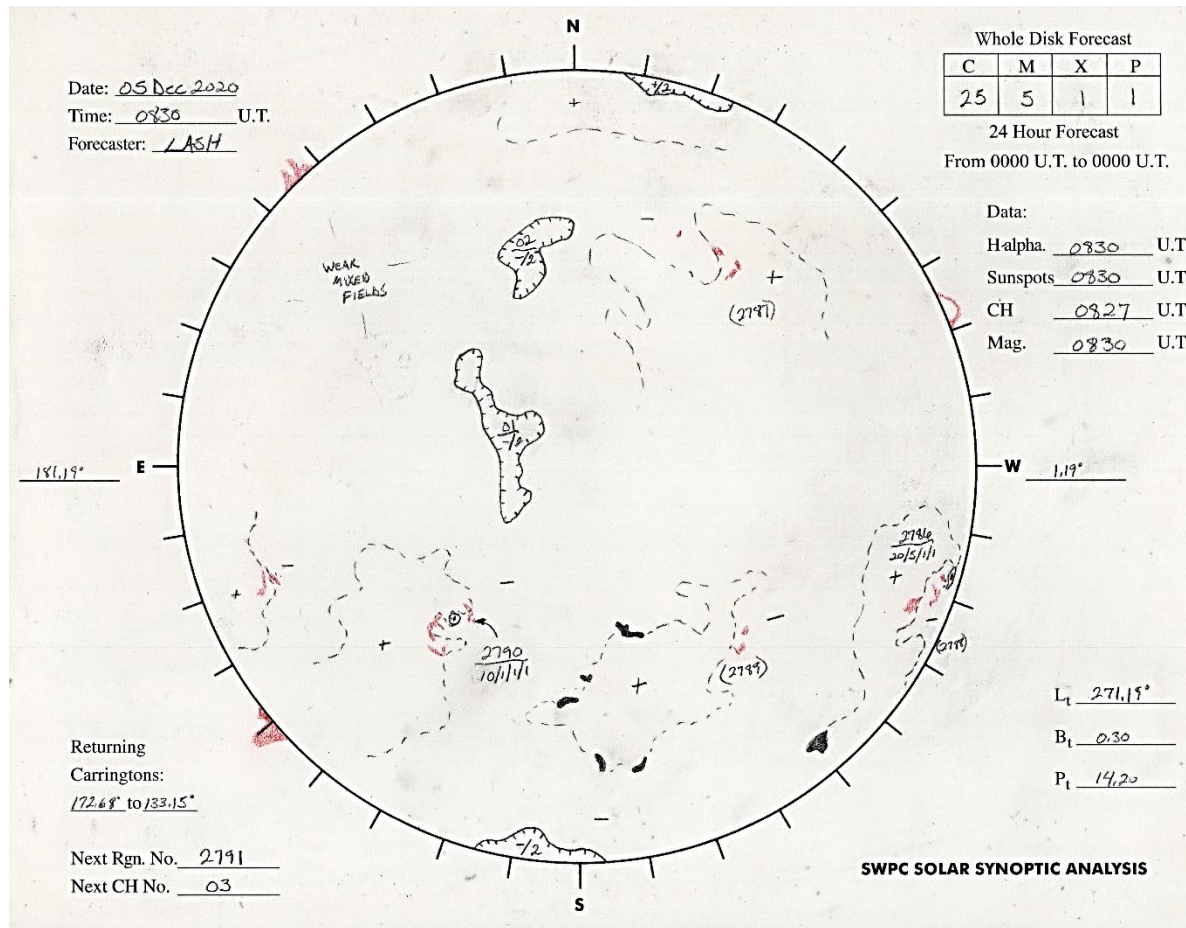 N
Date: 05 Dec 2020
Time: 0830 U.T.
Forecaster: LASH
Whole Disk Forecast
C M X P
25 5 1 1
24 Hour Forecast
From 0000 U.T. to 0000 U.T.
Data:
H-alpha. 0830 U.T
Sunspots 0830 U.T
CH 0827 U.T
Mag. 0830 U.T
+/2
+
02
-/2
WEAK
MIXED
FIELDS
−
+
(2787)
01
E
W
181.19°
1.19°
2786
20/5/1/1
+
−
−
+
−
+
2790
10/1/1/1
−
(2789)
+
−
-/2
Lt 271.19°
Bt 0.30
Pt 14.20
Returning
Carringtons:
172.68° to 133.15°
Next Rgn. No. 2791
Next CH No. 03
S
SWPC SOLAR SYNOPTIC ANALYSIS